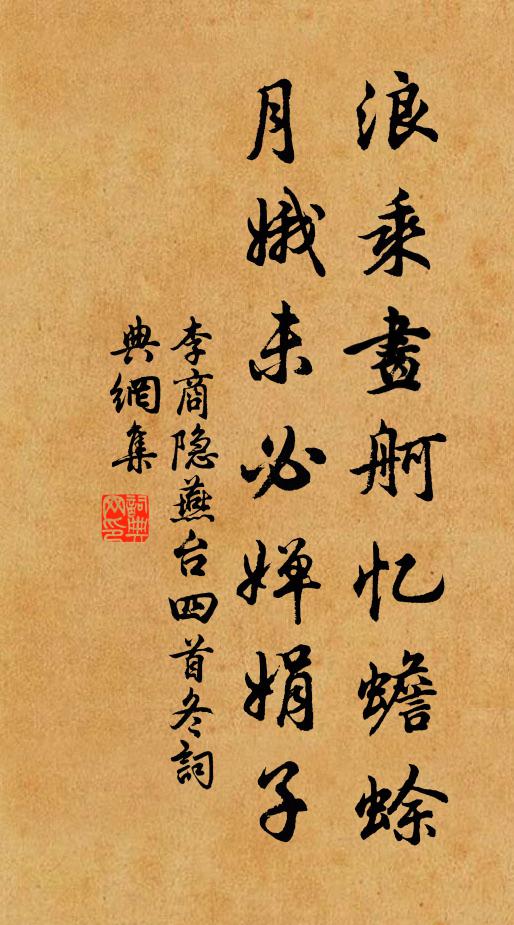 浪乘畫舸忆蟾蜍
月娥未必婵娟子
李商隐燕台四首冬詞
典網集
詞典网印